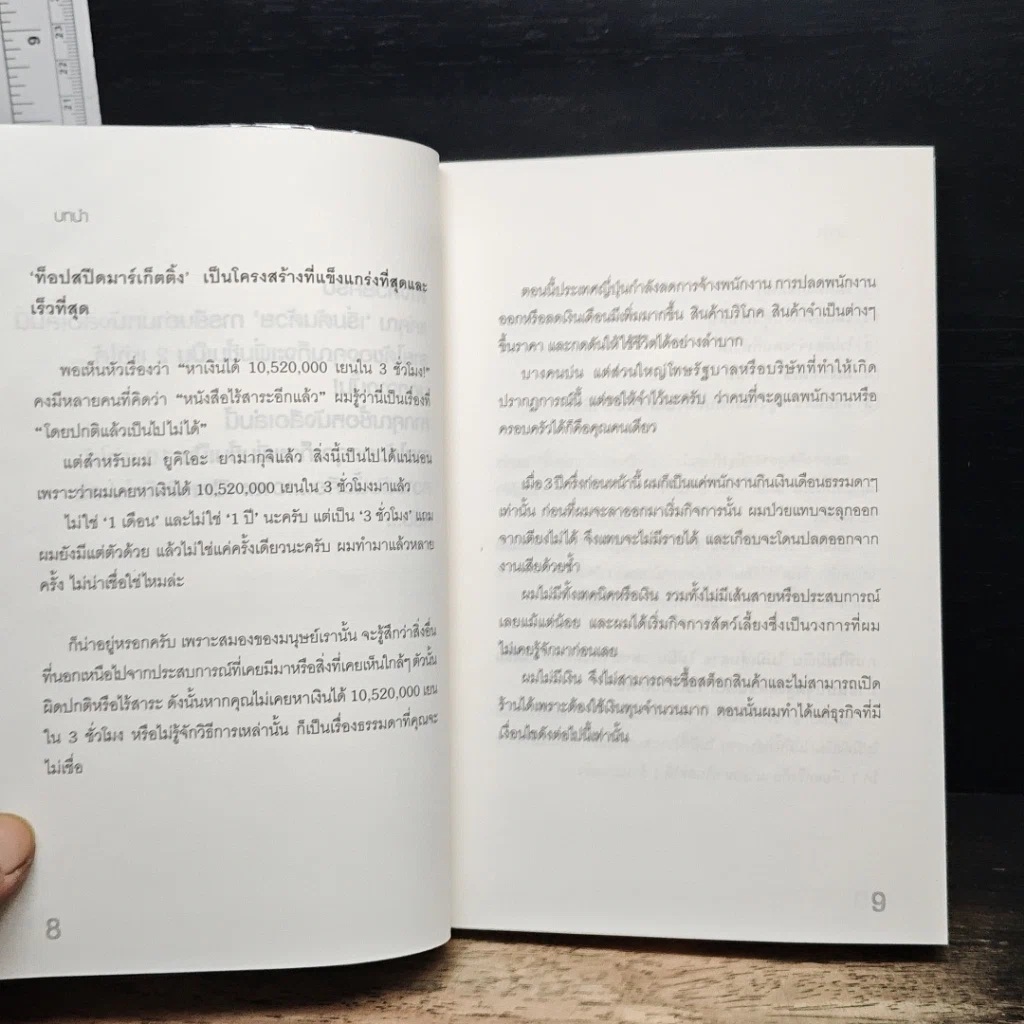 9
23
22
21
บทนำ
‘ท็อปสปีดมาร์เก็ตติ้ง’ เป็นโครงสร้างที่แข็งแกร่งที่สุดและ
เร็วที่สุด
พอเห็นหัวเรื่องว่า “หาเงินได้ 10,520,000 เยนใน 3 ชั่วโมง!”
คงมีหลายคนที่คิดว่า “หนังสือไร้สาระอีกแล้ว” ผมรู้ว่านี่เป็นเรื่องที่
“โดยปกติแล้วเป็นไปไม่ได้”
แต่สำหรับผม ยูคิโอะ ยามากุจิแล้ว สิ่งนี้เป็นไปได้แน่นอน
เพราะว่าผมเคยหาเงินได้ 10,520,000 เยนใน 3 ชั่วโมงมาแล้ว
ไม่ใช่ ‘1 เดือน’ และไม่ใช่ ‘1 ปี’ นะครับ แต่เป็น ‘3 ชั่วโมง’ แถม
ผมยังมีแต่ตัวด้วย แล้วไม่ใช่แค่ครั้งเดียวนะครับ ผมทำมาแล้วหลาย
ครั้ง ไม่น่าเชื่อใช่ไหมล่ะ
ก็น่าอยู่หรอกครับ เพราะสมองของมนุษย์เรานั้น จะรู้สึกว่าสิ่งอื่น
ที่นอกเหนือไปจากประสบการณ์ที่เคยมีมาหรือสิ่งที่เคยเห็นใกล้ๆ ตัวนั้น
ผิดปกติหรือไร้สาระ ดังนั้นหากคุณไม่เคยหาเงินได้ 10,520,000 เยน
ใน 3 ชั่วโมง หรือไม่รู้จักวิธีการเหล่านั้น ก็เป็นเรื่องธรรมดาที่คุณจะ
ไม่เชื่อ
8
ตอนนี้ประเทศญี่ปุ่นกำลังลดการจ้างพนักงาน การปลดพนักงาน
ออกหรือลดเงินเดือนมีเพิ่มมากขึ้น สินค้าบริโภค สินค้าจำเป็นต่างๆ
ขึ้นราคา และกดดันให้ใช้ชีวิตได้อย่างลำบาก
บางคนบ่น แต่ส่วนใหญ่โทษรัฐบาลหรือบริษัทที่ทำให้เกิด
ปรากฏการณ์นี้ แต่ขอให้จำไว้นะครับ ว่าคนที่จะดูแลพนักงานหรือ
ครอบครัวได้ก็คือคุณคนเดียว
เมื่อ 3 ปีครึ่งก่อนหน้านี้ ผมก็เป็นแค่พนักงานกินเงินเดือนธรรมดาๆ
เท่านั้น ก่อนที่ผมจะลาออกมาเริ่มกิจการนั้น ผมป่วยแทบจะลุกออก
จากเตียงไม่ได้ จึงแทบจะไม่มีรายได้ และเกือบจะโดนปลดออกจาก
งานเสียด้วยซ้ำ
ผมไม่มีทั้งเทคนิคหรือเงิน รวมทั้งไม่มีเส้นสายหรือประสบการณ์
เลยแม้แต่น้อย และผมได้เริ่มกิจการสัตว์เลี้ยงซึ่งเป็นวงการที่ผม
ไม่เคยรู้จักมาก่อนเลย
ผมไม่มีเงิน จึงไม่สามารถจะซื้อสต็อกสินค้าและไม่สามารถเปิด
ร้านได้เพราะต้องใช้เงินทุนจำนวนมาก ตอนนั้นผมทำได้แค่ธุรกิจที่มี
เงื่อนไขดังต่อไปนี้เท่านั้น
9